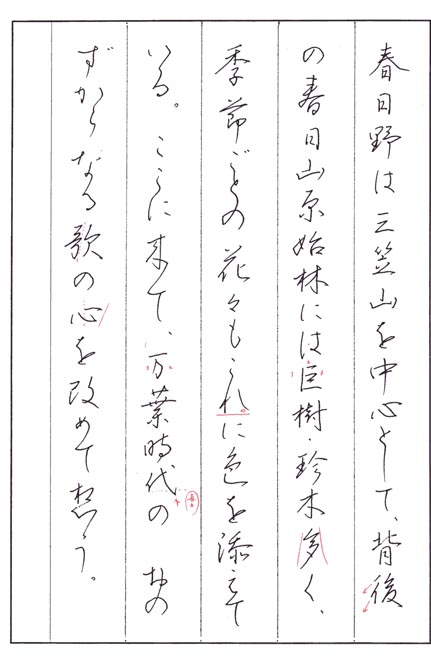 春日野は三笠山を中心として、背後
の春日山原始林には巨樹・珍木多く、
季節ごとの花々もこれに色を添えて
いる。ここに来て、万葉時代の おの
ずからなる歌の心を改めて想う。